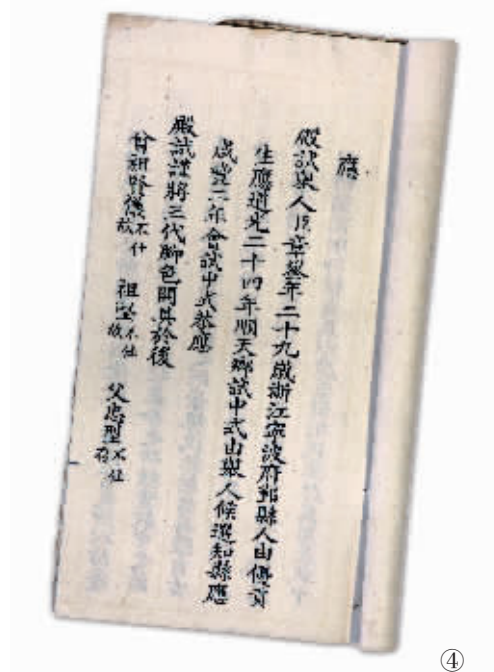 應
殿試舉人臣章鋆年二十九歲浙江寧波府鄞縣人由優貢
生應道光二十四年順天鄉試中式由舉人候選知縣應
咸豐二年會試中式恭應
殿試謹將三代腳色開具於後
曾祖 不仕故 祖 不仕故 父忠型不仕存
④